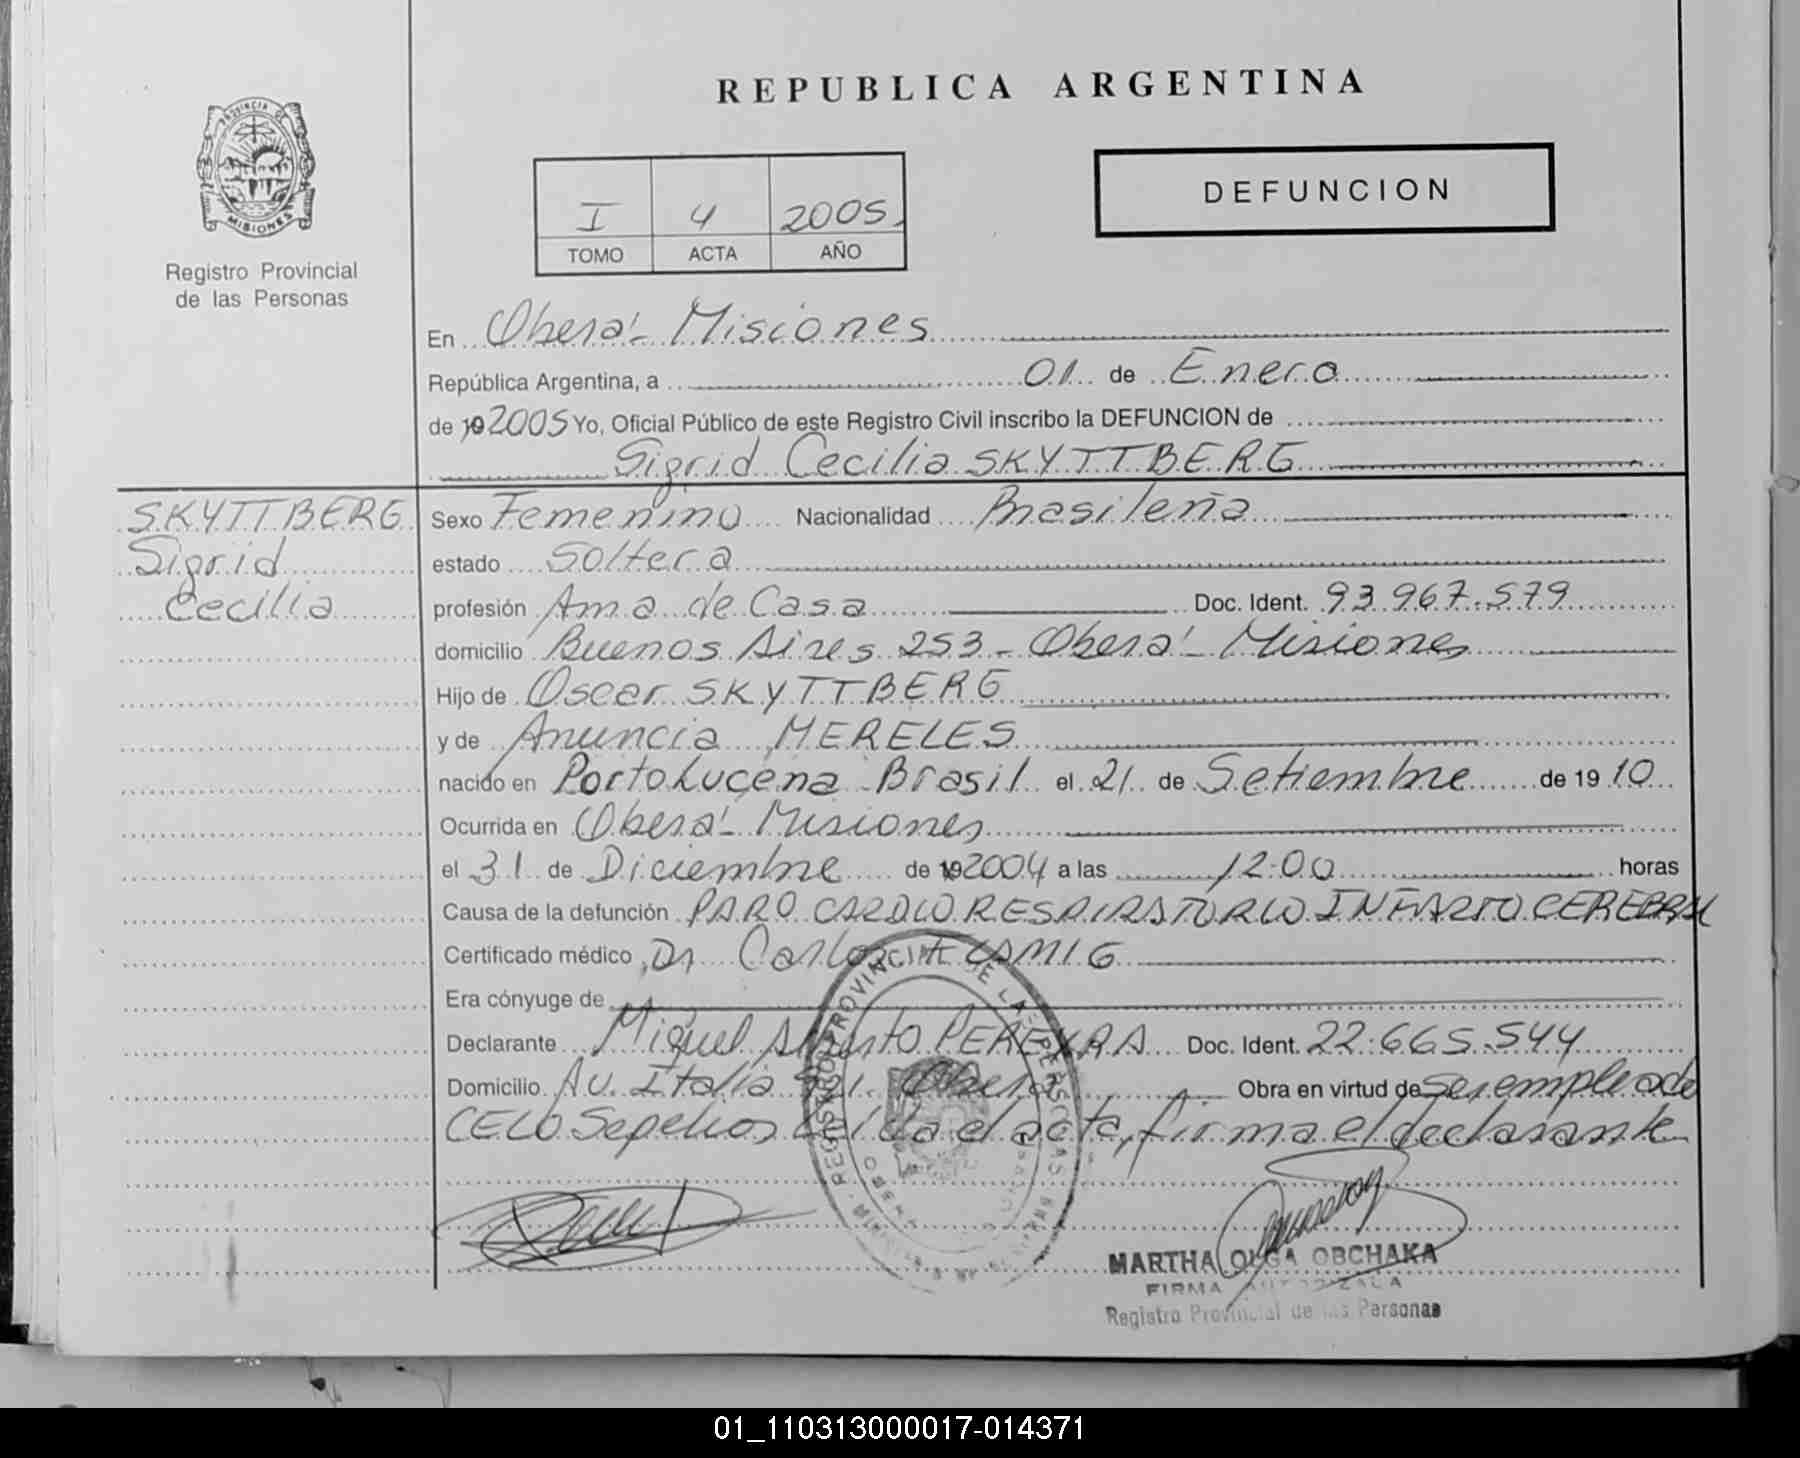 REPUBLICA ARGENTINA
PROVINCIA DE
MISIONES
Registro Provincial
de las Personas
I 4 2005
TOMO ACTA AÑO
DEFUNCION
En Oberá - Misiones
República Argentina, a 01 de Enero
de 19 2005 Yo, Oficial Público de este Registro Civil inscribo la DEFUNCION de
Sigrid Cecilia SKYTTBERG
SKYTTBERG
Sigrid
Cecilia
Sexo Femenino Nacionalidad Brasileña
estado Soltera
profesión Ama de Casa Doc. Ident. 93.967.579
domicilio Buenos Aires 253 - Oberá - Misiones
Hijo de Oscar SKYTTBERG
y de Anuncia MERELES
nacido en Porto Lucena Brasil el 21 de Setiembre de 19 10
Ocurrida en Oberá - Misiones
el 31 de Diciembre de 19 2004 a las 12.00 horas
Causa de la defunción PARO CARDIO RESPIRATORIO INFARTO CEREBRAL
Certificado médico Dr Carlos
Era cónyuge de
Declarante Miguel Alberto PEREYRA Doc. Ident. 22.665.544
Domicilio Av. Italia Oberá Obra en virtud de ser empleado
CELO Sepelios Leída el acta, firma el declarante
REGISTRO PROVINCIAL DE LAS PERSONAS
MARTHA OLGA OBCHAKA
FIRMA AUTORIZADA
Registro Provincial de las Personas
01_110313000017-014371